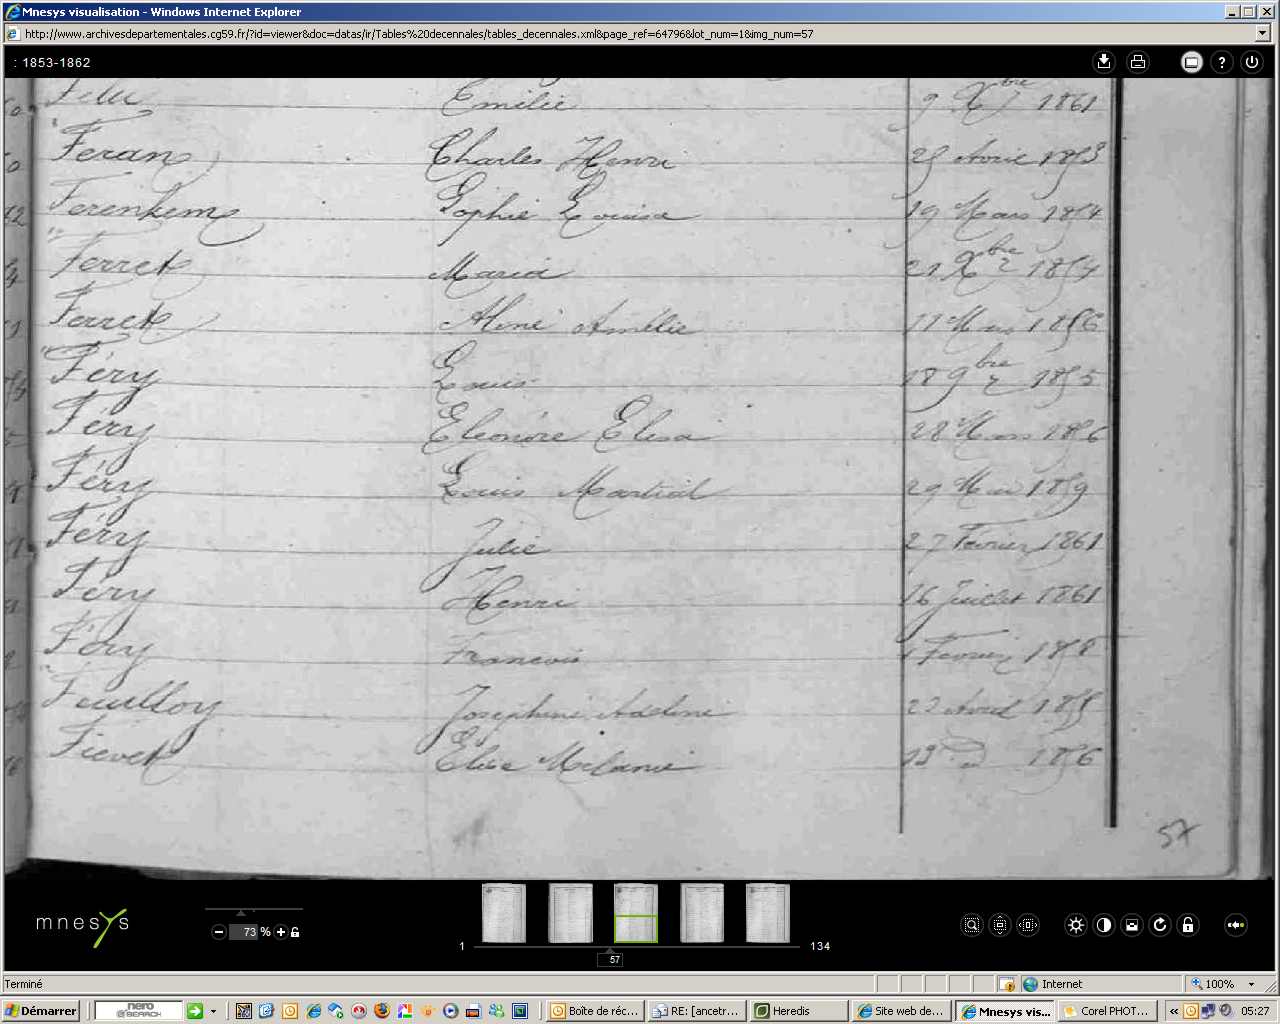 Mnesys visualisation - Windows Internet Explorer
http://www.archivesdepartementales.cg59.fr/?id=viewer&doc=datas/ir/Tables%20decennales/tables_decennales.xml&page_ref=64796&lot_num=1&img_num=57
: 1853-1862
?
Emélie 9 Xbre 1861
Feran Charles Henri 25 Avril 1853
Ferenkem Sophie Louisa 19 Mars 1854
Ferret Maria 21 Xbre 1854
Ferret Aliné Amélie 11 1856
Féry Louis 18 9bre 1855
Féry Eleonore Elisa 28 Mars 1856
Féry Louis Martial 29 Mai 1859
Féry Julie 27 Février 1861
Féry Henri 16 Juillet 1861
Féry Francois Fevrier 1858
Feuilloy Josephine Adeline 22 Avril
Fievet Elise Melanie 1856
57
mnesys
73 %
1
134
57
Terminé
Internet
100%
Démarrer
nero
SEARCH
Boîte de réc...
RE: [ancetr...
Heredis
Site web de...
Mnesys vis...
Corel PHOT...
«
05:27